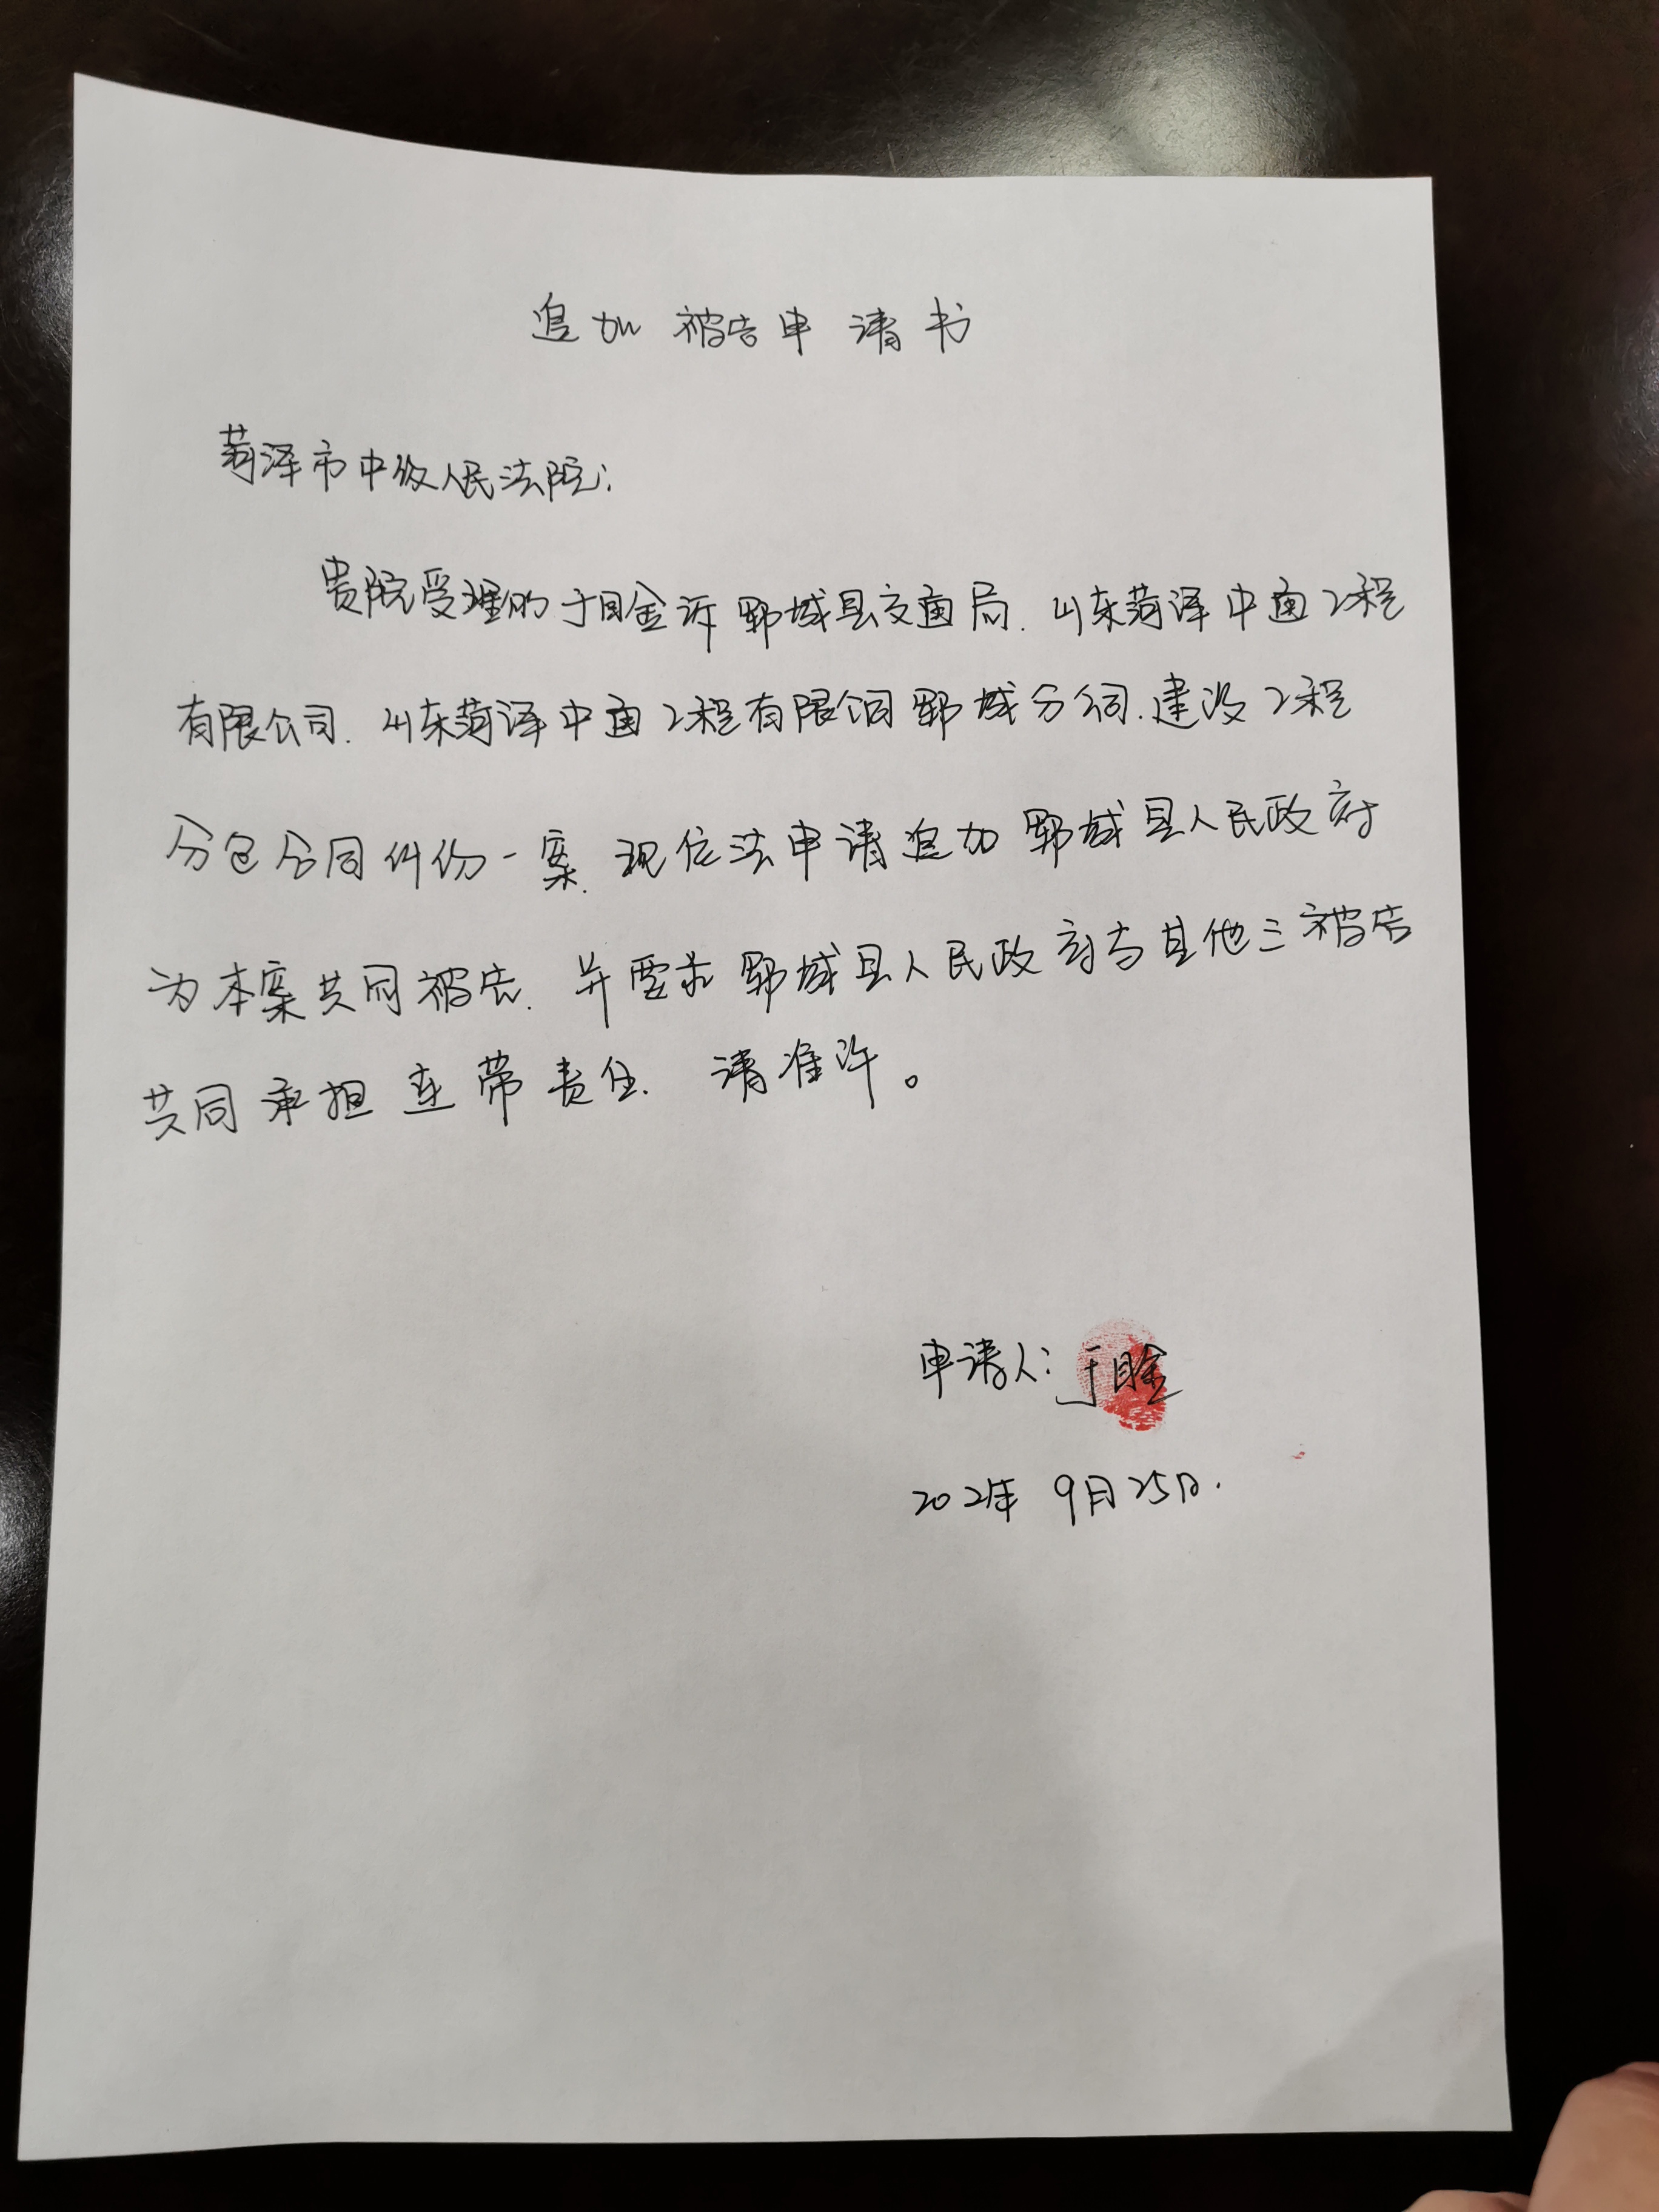 追加被告申请书
菏泽市中级人民法院:
贵院受理的于目金诉郓城县交通局.山东菏泽中通工程
有限公司.山东菏泽中通工程有限公司郓城分公司.建设工程
分包合同纠纷一案.现依法申请追加郓城县人民政府
为本案共同被告.并要求郓城县人民政府与其他三被告
共同承担连带责任.请准许。
申请人:于目金
2021年9月25日.